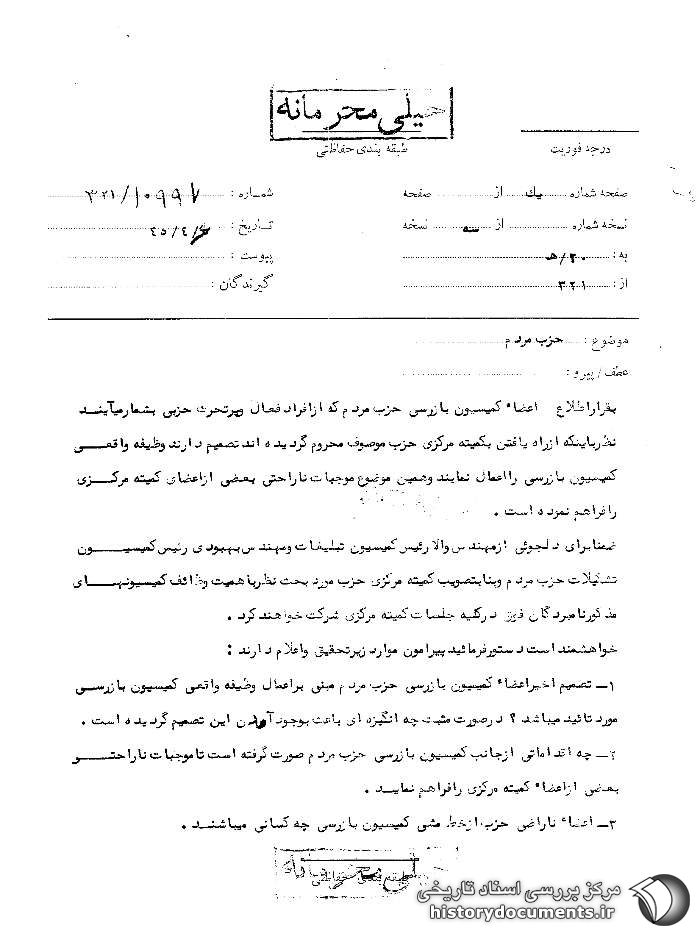 خیلی محرمانه
درجه فوریت
طبقه بندی حفاظتی
صفحه شماره یک از صفحه
شماره : ۳۲۱/۱۰۹۹۷
نسخه شماره از سه نسخه
تاریخ : ۴۵/۴/۶
به : ۲۰/هـ
پیوست :
از : ۳۲۱
گیرندگان :
موضوع : حزب مردم
عطف / پیرو :
بقراراطلاع اعضاء کمیسیون بازرسی حزب مردم که ازافراد فعال وپرتحرت حزبی بشمارمیآیند
نظرباینکه ازراه یافتن بکمیته مرکزی حزب موصوف محروم گردیده اند تصمیم دارند وظیفه واقعی
کمیسیون بازرسی رااعمال نمایند وهمین موضوع موجبات ناراحتی بعضی ازاعضای کمیته مرکزی
رافراهم نموده است .
ضمنابرای دلجوئی ازمهندس والا رئیس کمیسیون تبلیغات ومهندس بهبودی رئیس کمیسیون
تشکیلات حزب مردم وبنابتصویب کمیته مرکزی حزب مورد بحث نظرباهمیت وظائف کمیسیونهای
مذکورنامبردگان فوق درکلیه جلسات کمیته مرکزی شرکت خواهند کرد .
خواهشمند است دستورفرمائید پیرامون موارد زیرتحقیق واعلام دارند :
۱ـ تصمیم اخیراعضاء کمیسیون بازرسی حزب مردم مبنی براعمال وظیفه واقعی کمیسیون بازرسی
مورد تائید میباشد ؟ درصورت مثبت چه انگیزه ای باعث بوجودآمدن این تصمیم گردیده است .
۲ـ چه اقداماتی ازجانب کمیسیون بازرسی حزب مردم صورت گرفته است تاموجبات ناراحتی
بعضی ازاعضاء کمیته مرکزی رافراهم نماید .
۳ـ اعضاء ناراضی حزب ازخط مشی کمیسیون بازرسی چه کسانی میباشند .
خیلی محرمانه
طبقه بندی حفاظتی
مرکز بررسی اسناد تاریخی
historydocuments.ir